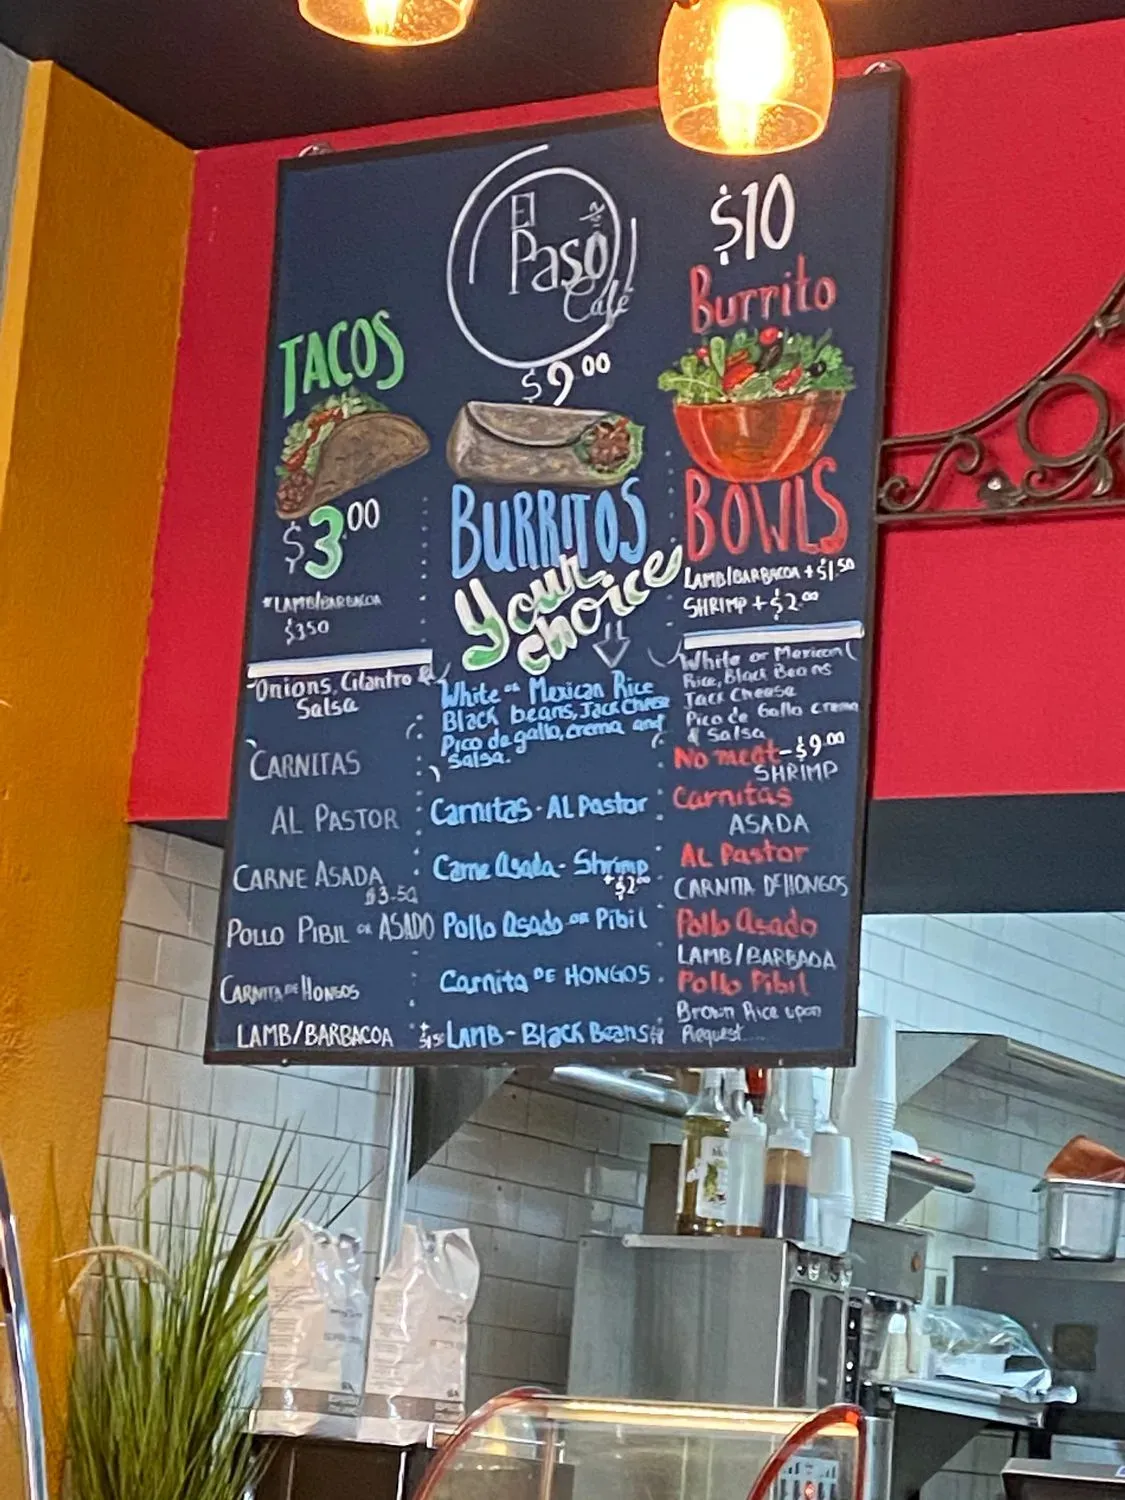 El
Paso
Café
TACOS
$3.00
*LAMB/BARBACOA
$3.50
Onions, Cilantro &
Salsa
CARNITAS
AL PASTOR
CARNE ASADA
$3.50
POLLO PIBIL OR ASADO
CARNITA DE HONGOS
LAMB/BARBACOA
$9.00
BURRITOS
Your
choice
White or Mexican Rice
Black beans, Jack Cheese
Pico de gallo, crema and
Salsa.
Carnitas - AL Pastor
Carne Asada - Shrimp
+$2.00
Pollo Asado OR Pibil
Carnita DE HONGOS
+$1.50 LAMB - Black Beans
$10
Burrito
BOWLS
LAMB/BARBACOA +$1.50
SHRIMP +$2.00
White or Mexican
Rice, Black Beans
Jack Cheese
Pico de Gallo crema
& Salsa
No meat - $9.00
SHRIMP
Carnitas
ASADA
AL Pastor
CARNITA DE HONGOS
Pollo Asado
LAMB/BARBAOA
Pollo Pibil
Brown Rice upon
Request....